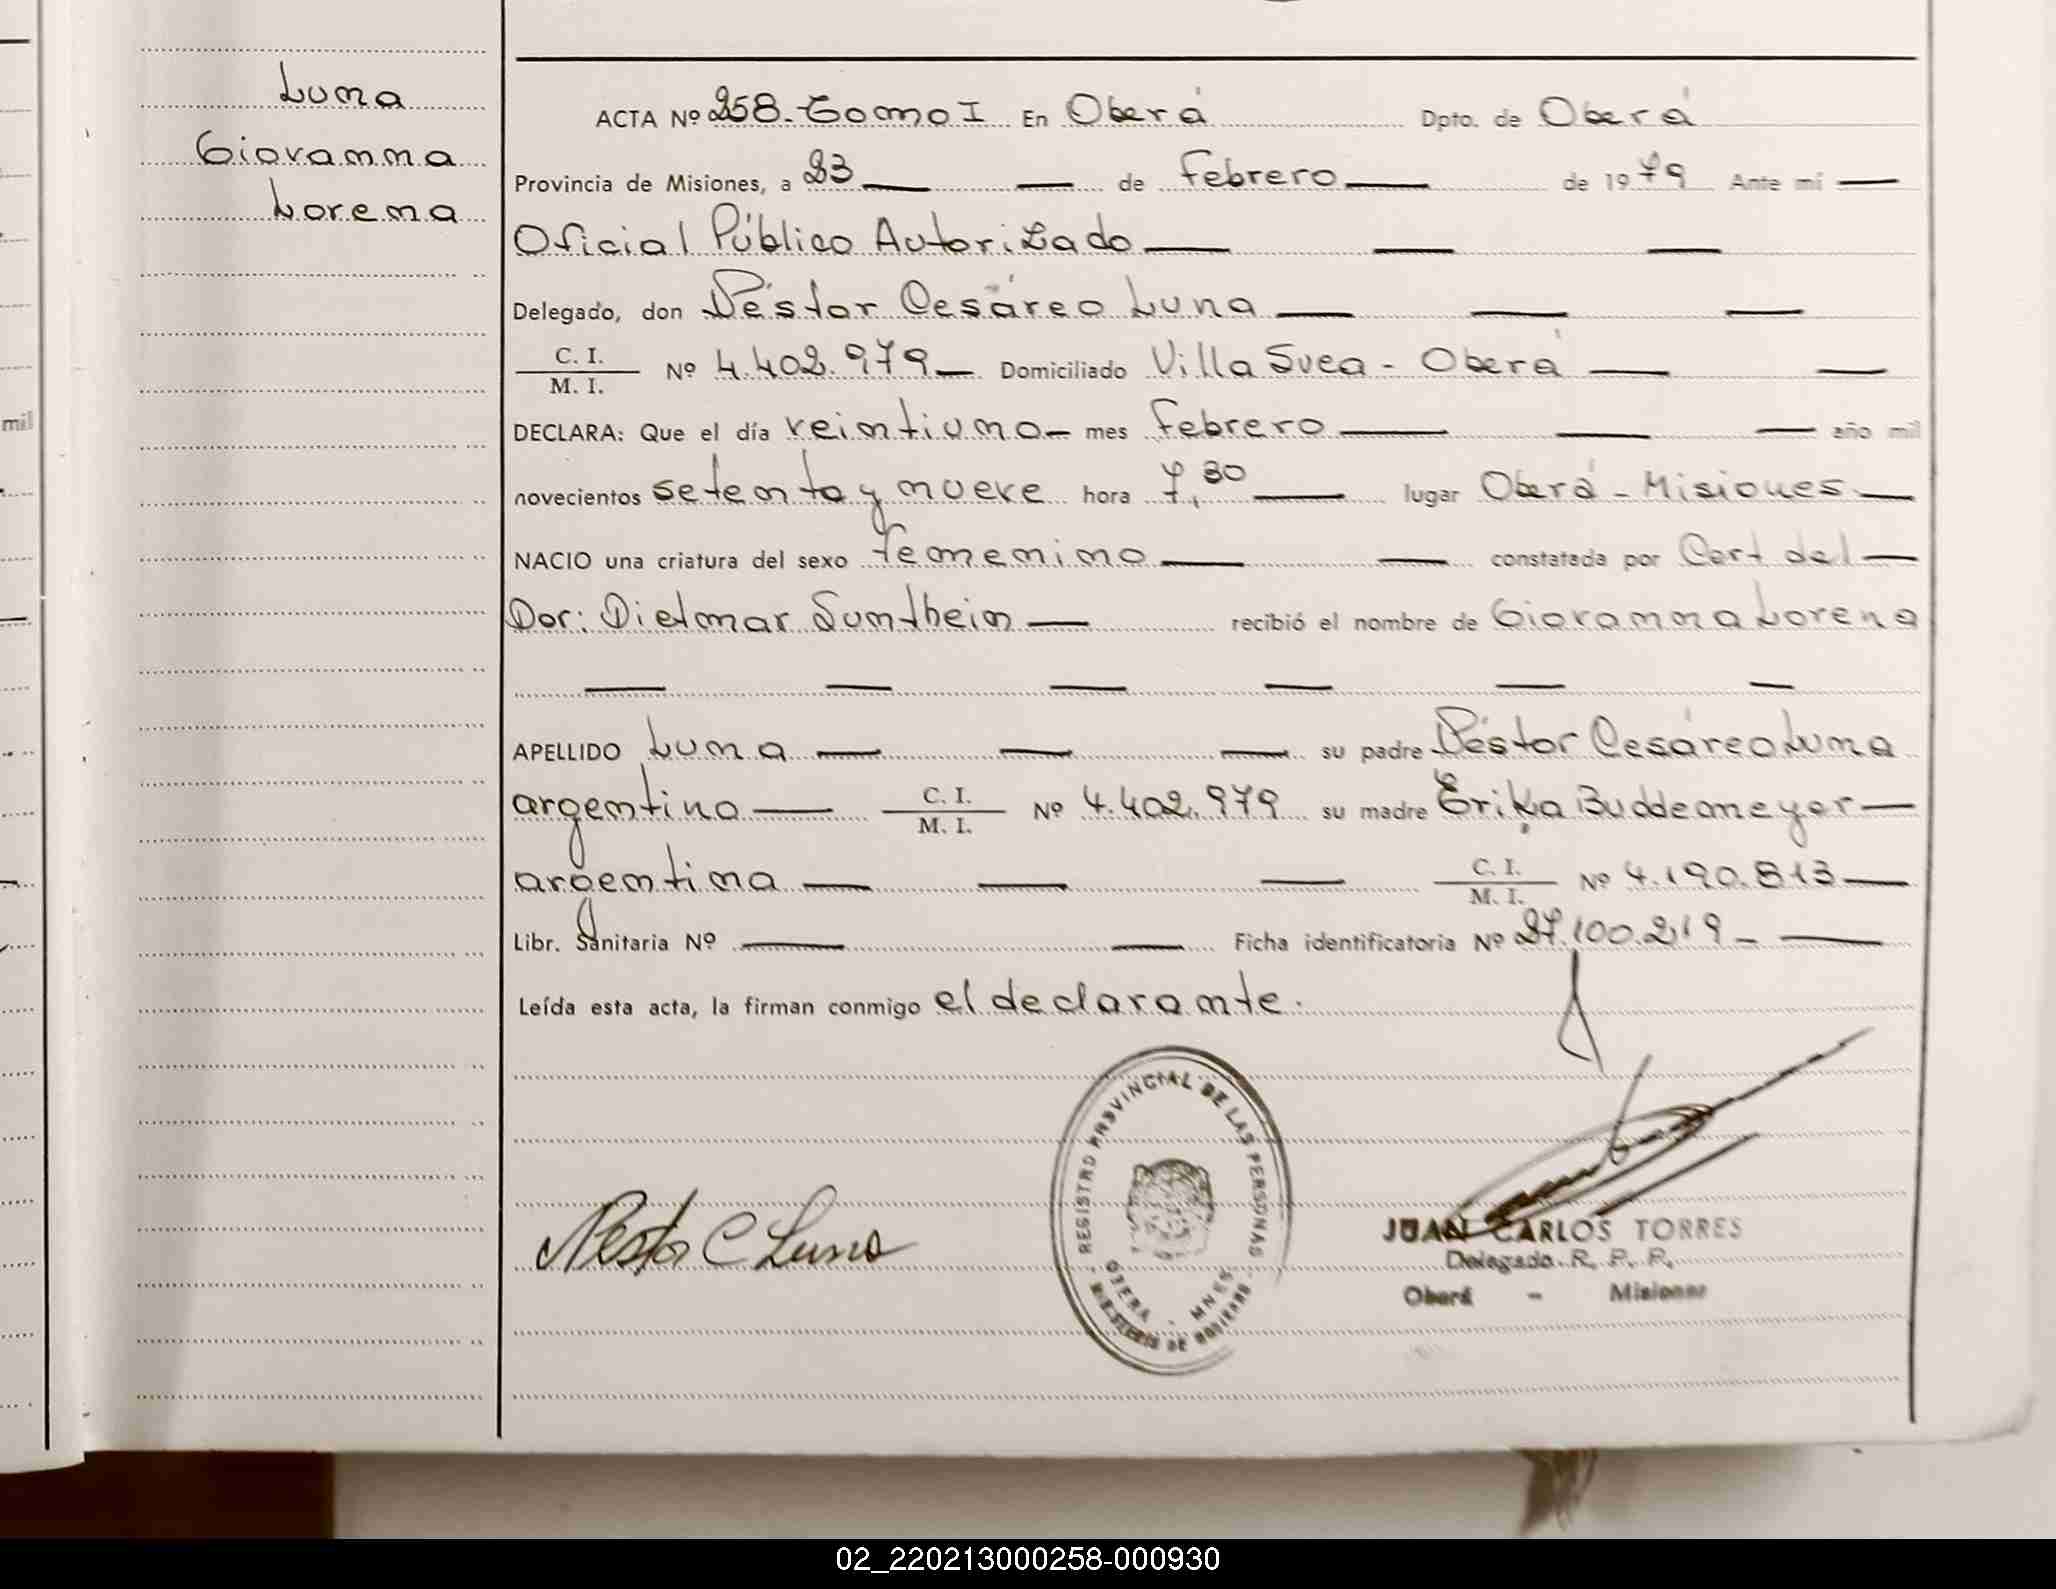 Luna
Giovanna
Lorena
ACTA Nº 258. Tomo I En Oberá Dpto. de Oberá
Provincia de Misiones, a 23 de febrero de 1979 Ante mí
Oficial Público Autorizado
Delegado, don Néstor Cesáreo Luna
C. I.
M. I. Nº 4.402.979 Domiciliado Villa Svea - Oberá
DECLARA: Que el día veintiuno mes febrero año mil
mil
novecientos setenta y nueve hora 7,30 lugar Oberá - Misiones
NACIO una criatura del sexo femenino constatada por Cert del
Dor: Dietmar Sumthein recibió el nombre de Giovanna Lorena
APELLIDO Luna su padre Néstor Cesáreo Luna
argentino C. I. M. I. Nº 4.402.979 su madre Erika Buddemeyer
argentina C. I. M. I. Nº 4.190.813
Libr. Sanitaria Nº Ficha identificatoria Nº 27.100.219
Leída esta acta, la firman conmigo el declarante.
REGISTRO PROVINCIAL DE LAS PERSONAS
OBERA - MNES
MINISTERIO DE GOBIERNO
Nestor C Luna
JUAN CARLOS TORRES
Delegado R. P. P.
Oberá - Misiones
02_220213000258-000930